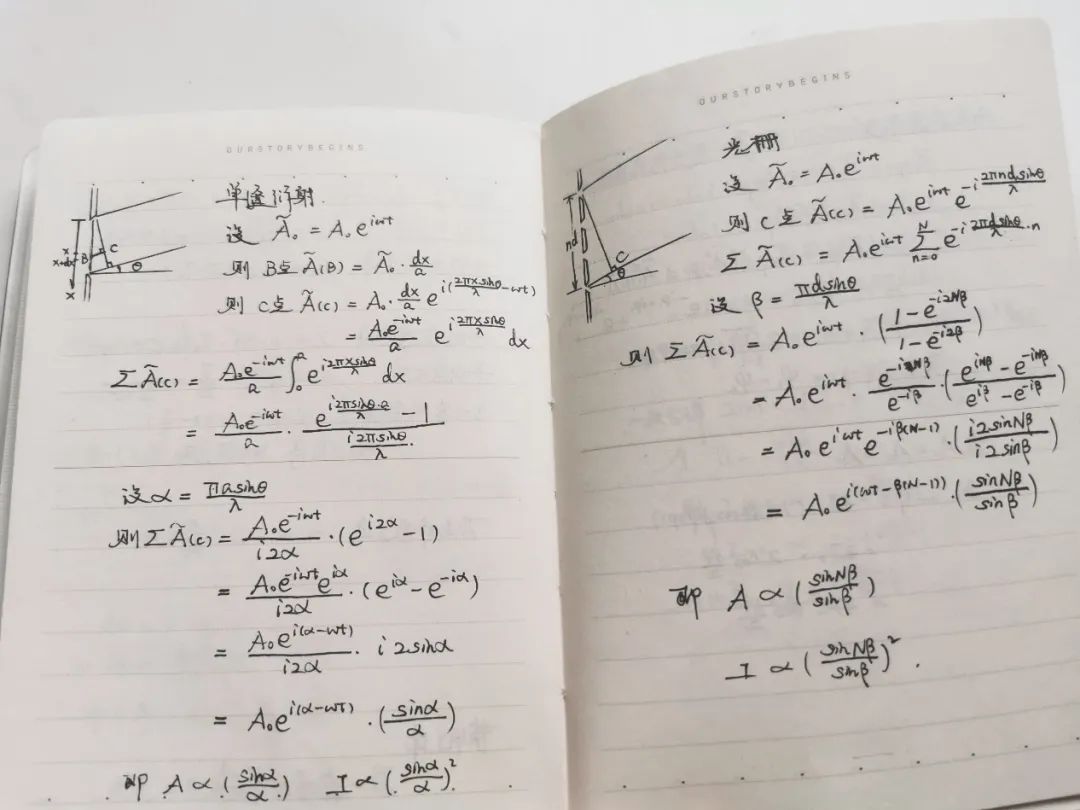 OURSTORYBEGINS
单缝衍射.
设 Ã₀ = A₀e^{iωt}
则 B点 Ã(B) = Ã₀ · dx/a
则 C点 Ã(C) = A₀ · dx/a e^{i(2πx sinθ/λ − ωt)}
= A₀e^{-iωt}/a e^{i 2πx sinθ/λ} dx
ΣÃ(C) = A₀e^{-iωt}/a ∫₀^a e^{i 2πx sinθ/λ} dx
= A₀e^{-iωt}/a · (e^{i 2π sinθ·a/λ} − 1)/(i 2π sinθ/λ)
设 α = πa sinθ/λ
则 ΣÃ(C) = A₀e^{-iωt}/(i2α) · (e^{i2α} − 1)
= A₀e^{-iωt}e^{iα}/(i2α) · (e^{iα} − e^{-iα})
= A₀e^{i(α−ωt)}/(i2α) · i2sinα
= A₀e^{i(α−ωt)} · (sinα/α)
即 A ∝ (sinα/α) I ∝ (sinα/α)²
x
x+dx
B
C
θ
x
OURSTORYBEGINS
光栅
设 Ã₀ = A₀e^{iωt}
则 C点 Ã(C) = A₀e^{iωt} e^{-i 2πnd sinθ/λ}
ΣÃ(C) = A₀e^{iωt} Σ_{n=0}^{N} e^{-i 2πd sinθ/λ · n}
设 β = πd sinθ/λ
则 ΣÃ(C) = A₀e^{iωt} · ((1 − e^{-i2Nβ})/(1 − e^{-i2β}))
= A₀e^{iωt} · e^{-iNβ}/e^{-iβ} · ((e^{iNβ} − e^{-iNβ})/(e^{iβ} − e^{-iβ}))
= A₀e^{iωt} e^{-iβ(N−1)} · (i2sinNβ/i2sinβ)
= A₀e^{i(ωt−β(N−1))} · (sinNβ/sinβ)
即 A ∝ (sinNβ/sinβ)
I ∝ (sinNβ/sinβ)².
nd
C
θ